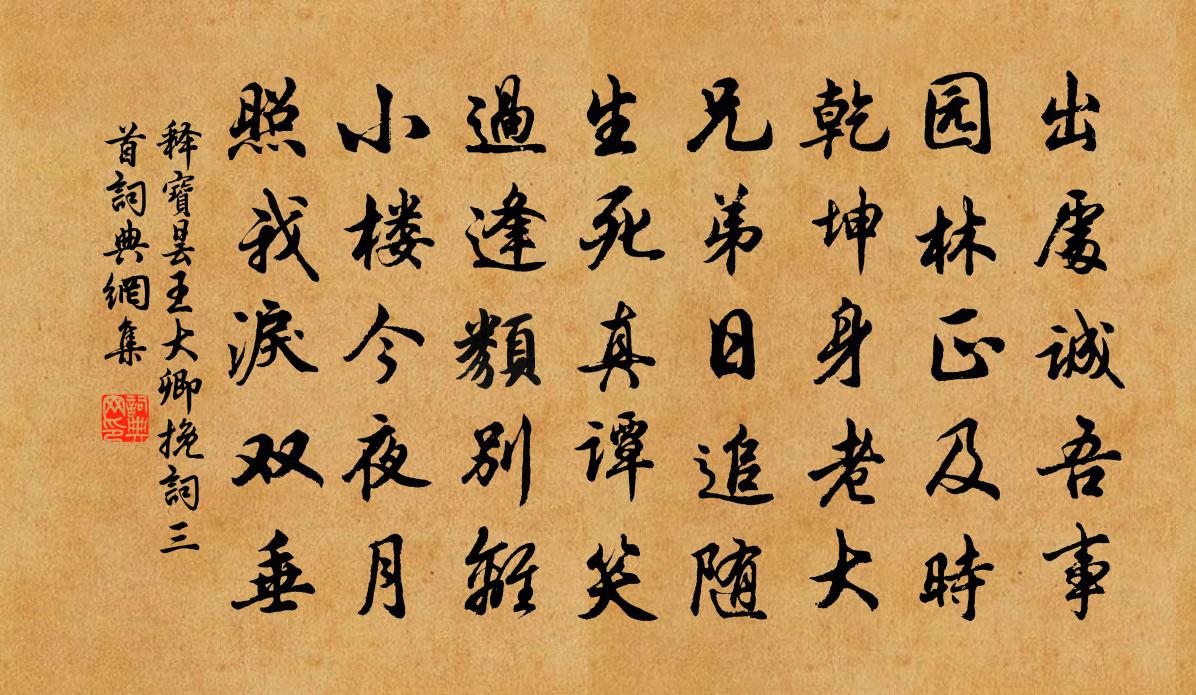 出處誠吾事
园林正及時
乾坤身老大
兄弟日追随
生死真譚笑
過逢類別離
小楼今夜月
照我淚双垂
释寶曇王大卿挽詞三
首詞典網集
詞典网印